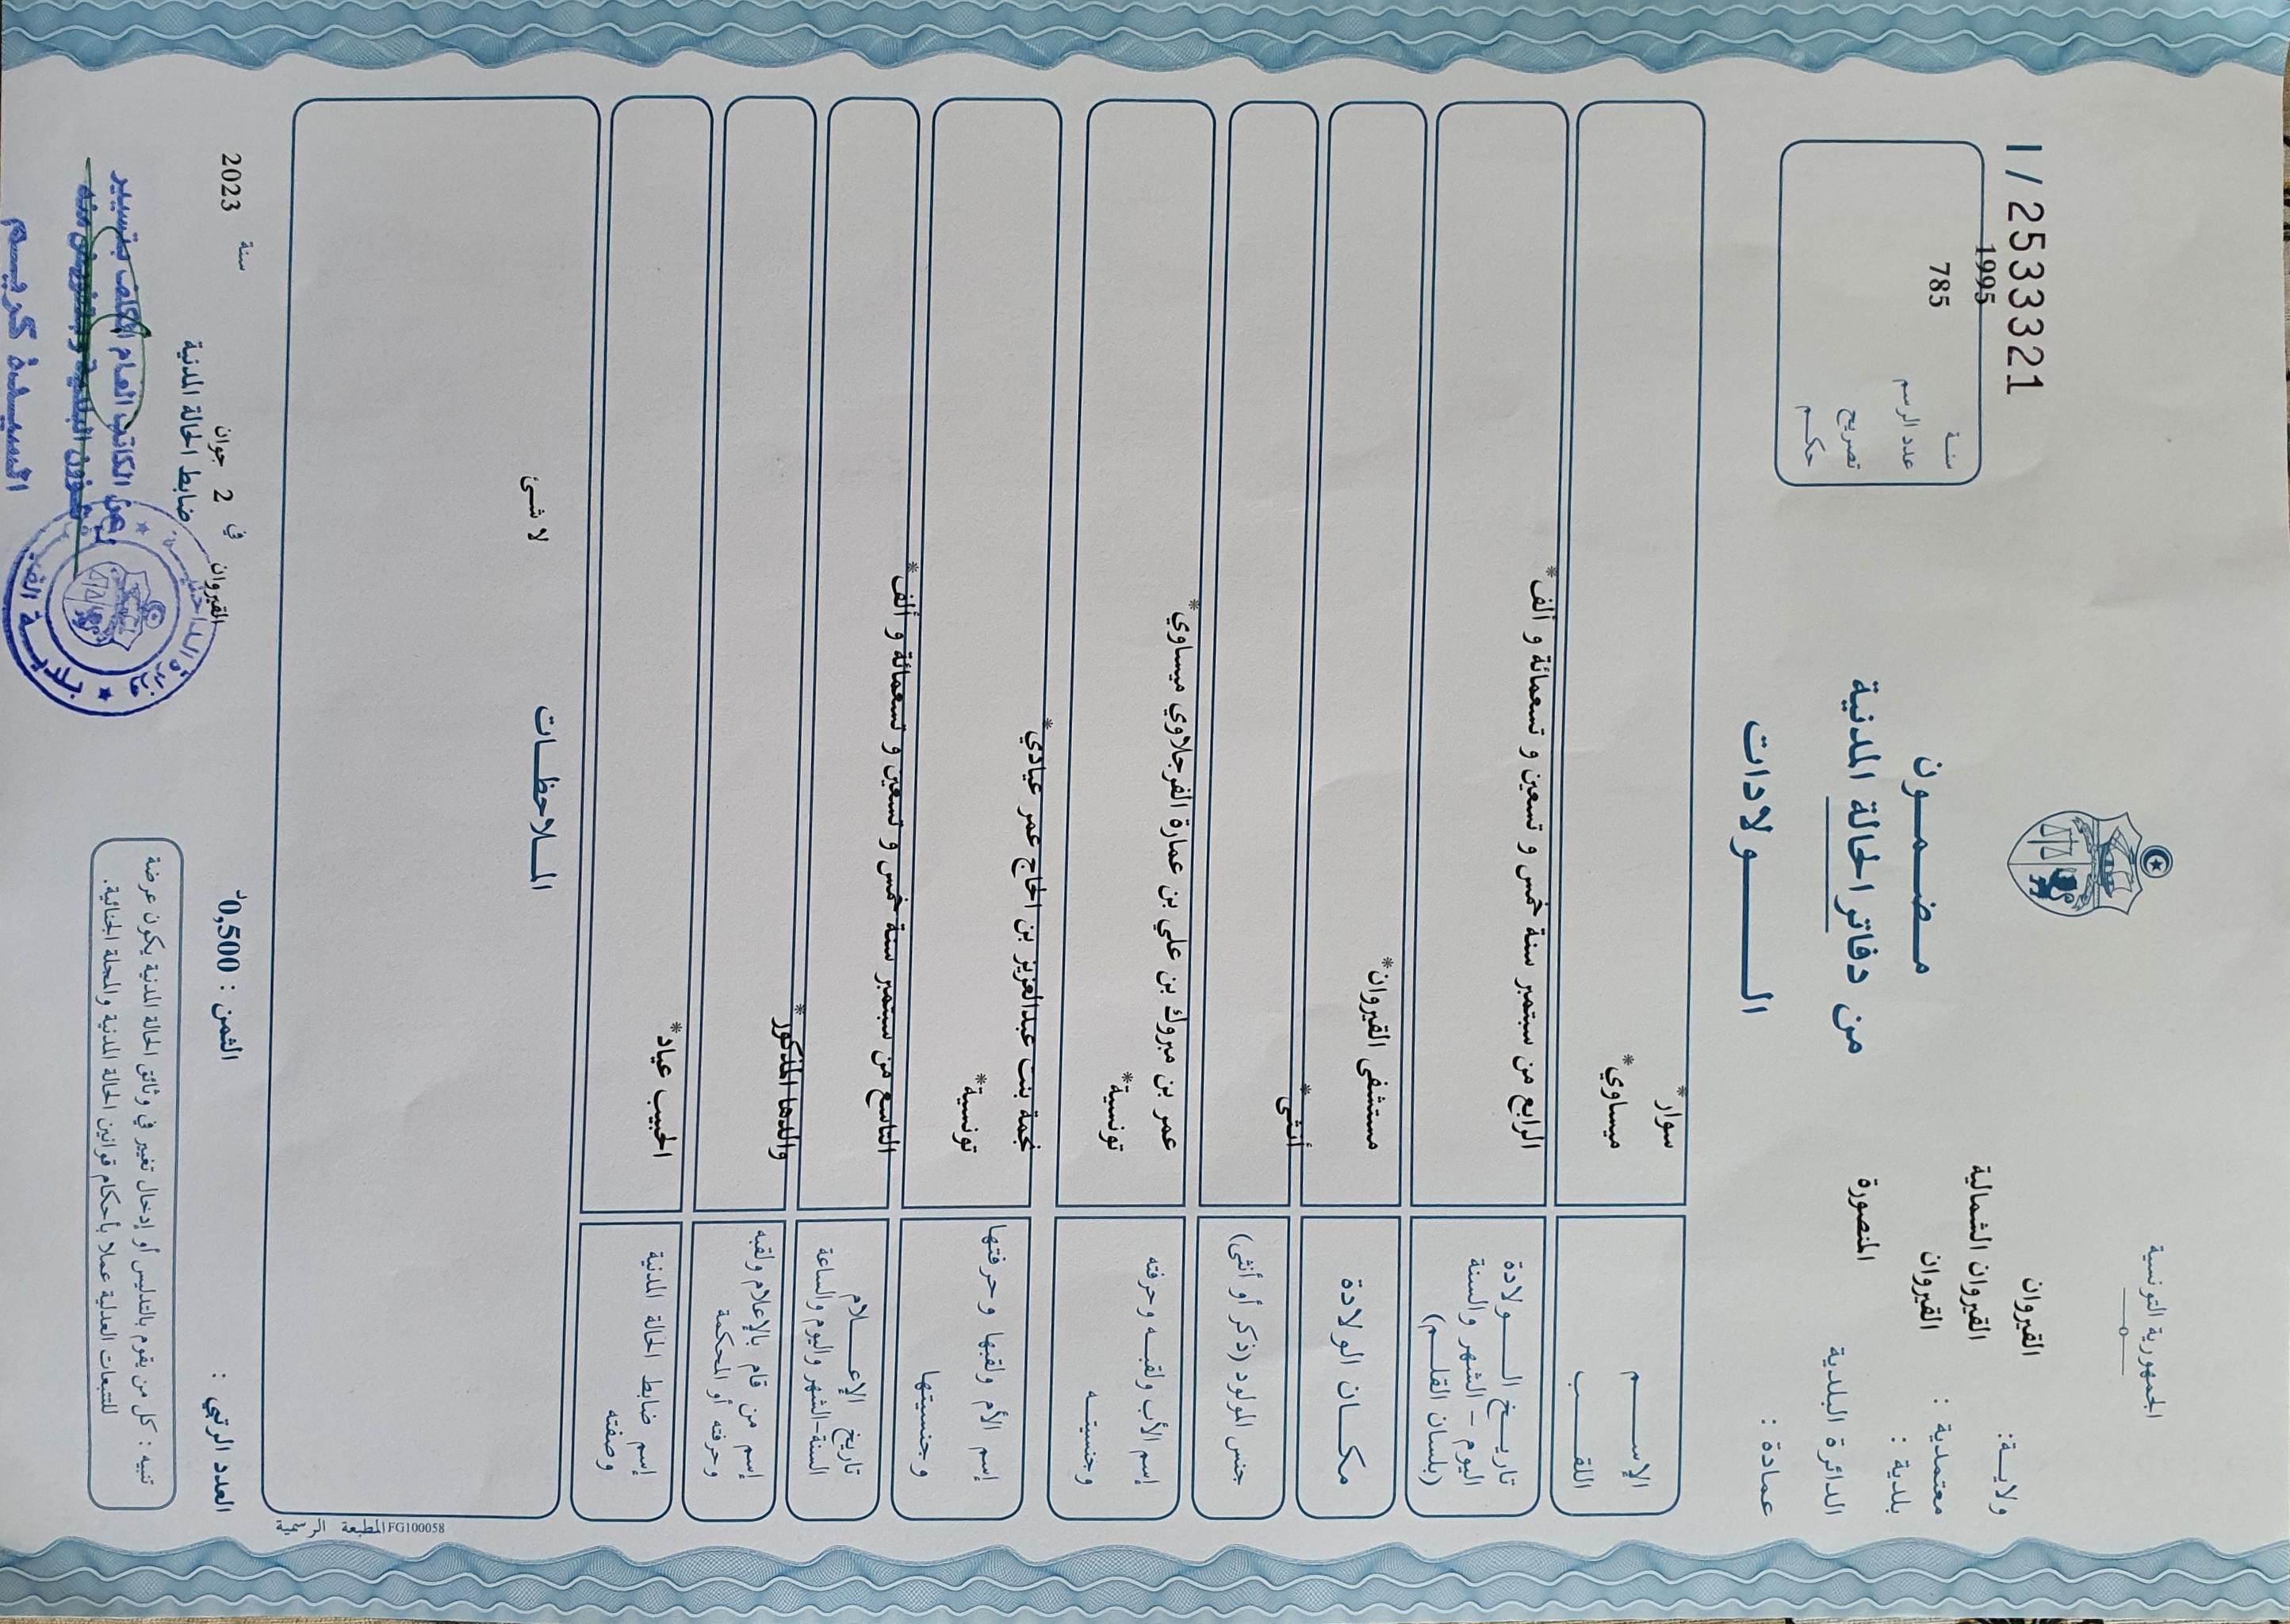 الجمهورية التونسية
ولايــة: القيروان
معتمدية : القيروان الشمالية
بلدية : القيروان
الدائرة البلدية المنصورة
عمادة :
مـضـمـــون
من دفاتر الحالة المدنية
الـــــولادات
I/2533321
سنـة 1995
عدد الرسم 785
تصريح
حكـم
الإســـم سوار*
اللقـــب ميساوي*
تاريــخ الـــولادة
اليوم – الشهر والسنة
(بلسان القلـــم)
الرابع من سبتمبر سنة خمس و تسعين و تسعمائة و ألف*
مكـــان الولادة مستشفى القيروان*
جنس المولود (ذكر أو أنثى) أنثى*
إسم الأب ولقبـه وحرفته عمر بن مبروك بن علي بن عمارة الفرجلاوي ميساوي*
وجنسيتـــه تونسية*
إسم الأم ولقبها وحرفتها نجمة بنت عبدالعزيز بن الحاج عمر عيادي*
وجنسيتها تونسية*
تاريخ الإعـــلام
السنة-الشهر واليوم والساعة
التاسع من سبتمبر سنة خمس و تسعين و تسعمائة و ألف*
إسم من قام بالإعلام ولقبه
وحرفته أو المحكمة
والدها المذكور*
إسم ضابط الحالة المدنية
وصفته
الحبيب عياد*
المـــلاحظـــات
لا شئ
المطبعة الرسمية FG100058
العدد الرتبي :
الثمن : 0,500د
القيروان في 2 جوان سنة 2023
ضابط الحالة المدنية
عن الكاتب العام المكلف بتسيير
شؤون البلدية وبتفويض منه
السيـــدة كريـــم
تنبيه : كل من يقوم بالتدليس أو إدخال تغيير في وثائق الحالة المدنية يكون عرضة
للتتبعات العدلية عملا بأحكام قوانين الحالة المدنية والمجلة الجنائية.